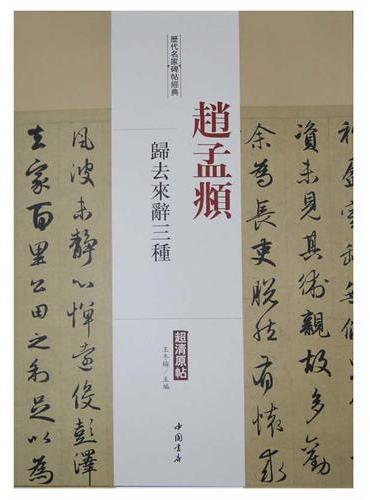 資未見其術親故多勸
余為長吏脫然有懷求
歷代名家碑帖經典
趙孟頫
歸去來辭三種
超清原帖
王冬梅/主編
中國書店
風波未靜心憚遠役彭澤
去家百里公田之利足以為